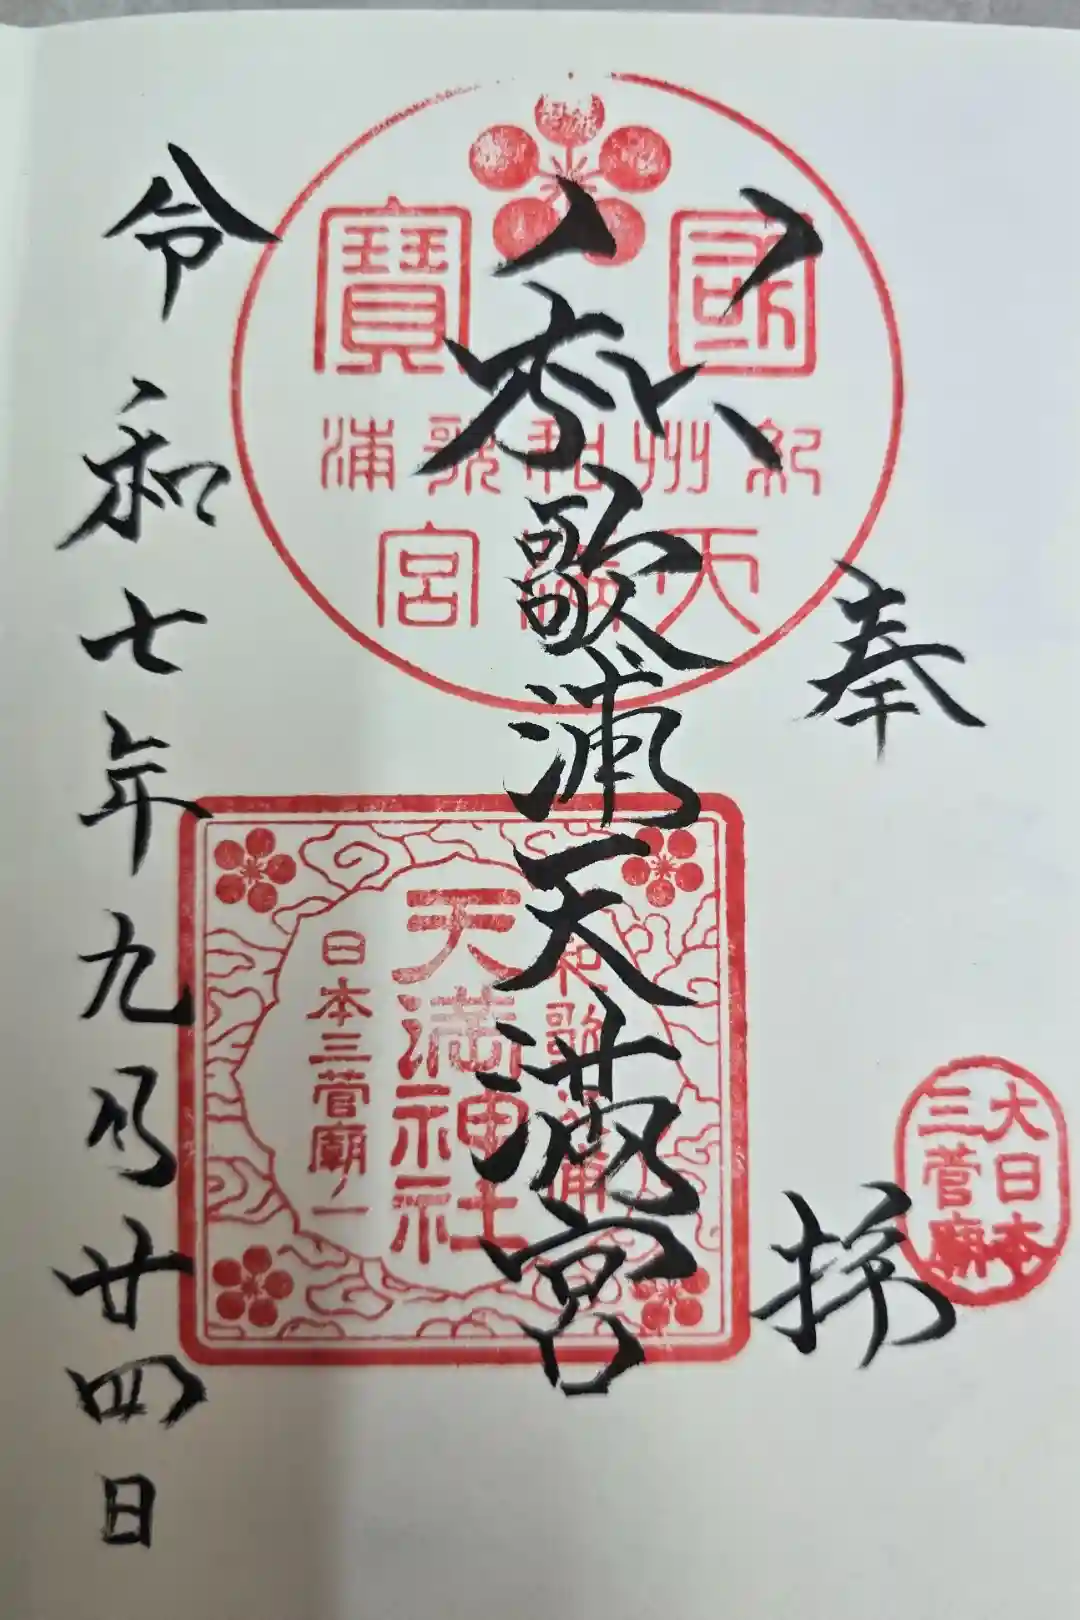 奉拝
大日本
三菅廟
國寶
紀州和歌浦
天滿宮
和歌浦天満宮
和歌浦
天満神社
日本三菅廟ノ一
令和七年九月廿四日